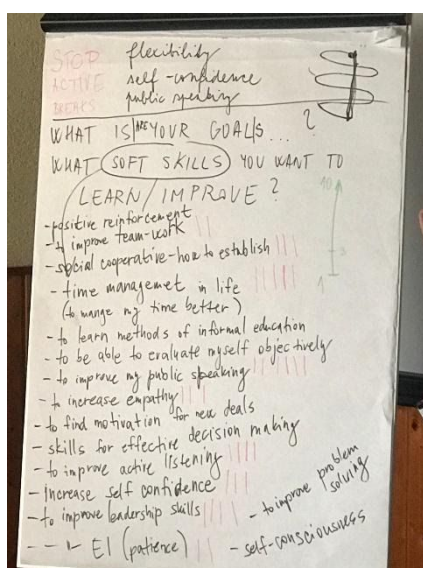 STOP flexibility
ACTIVE self-confidence
BREAKS public speaking
WHAT IS/ARE YOUR GOAL/S... ?
WHAT SOFT SKILLS YOU WANT TO
LEARN/IMPROVE?
- positive reinforcement
- to improve team-work
- social cooperative - how to establish
- time managemet in life
(to mange my time better)
- to learn methods of informal education
- to be able to evaluate myself objectively
- to improve my public speaking
- to increase empathy
- to find motivation for new deals
- skills for effective decision making
- to improve active listening
- Increase self confidence
- to improve leadership skills
- to improve problem
solving
- -||- EI (patience)
- self-consciousness
10
1